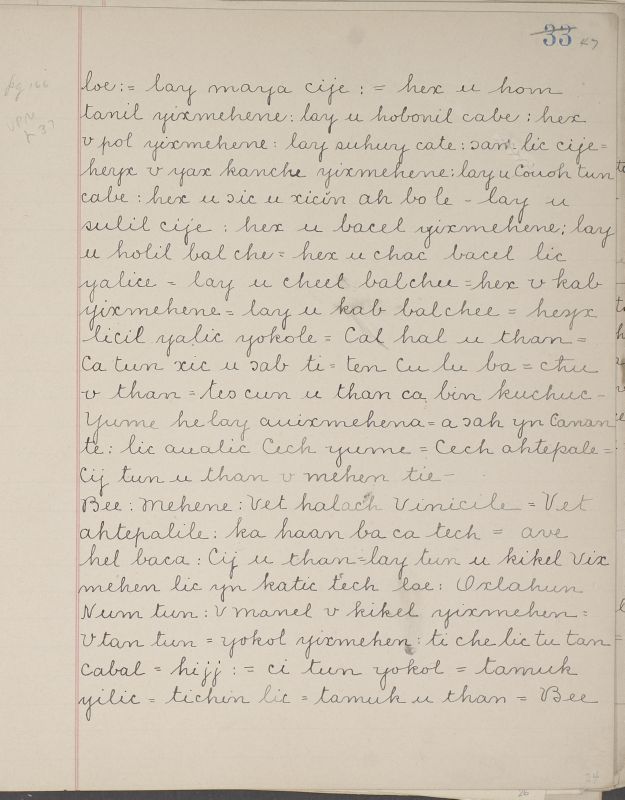 33 47
pg 166
loe := lay maya cije := hex u hom
tanil yixmehene: lay u hobonil cabe: hex
v pol yixmehene: lay suhuy cate: ɔan lic cije=
heyx v yax kanche yixmehene: lay u Couoh tun
cabe: hex u ɔic u xicin ah bo le - lay u
sulil cije: hex u bacel yixmehene; lay
u holil bal che= hex u chac bacel lic
yalice = lay u cheel balchee = hex v kab
yixmehene = lay u kab balchee = heyx
licil yalic yokole = Cal hal u than =
Ca tun xic u ɔab ti = ten Cu lu ba = chu
v than = tes cun u than ca bin kuchuc -
Yume helay auixmehena = a ɔah yn Canan
te: lic aualic Cech yume = Cech ahtepale =
Cij tun u than v mehen tie -
Bee: Mehene: Vet halach Vinicile = Vet
ahtepalile: ka haan ba ca tech = ave
hel baca: Cij u than = lay tun u kikel Vix
mehen lic yn katic tech loe: Oxlahun
Num tun: V manel v kikel yixmehen =
V tan tun = yokol yixmehen: ti che lic tu tan
cabal = hijj := ci tun yokol = tamuk
yilic = tichin lic = tamuk u than = Bee
34
26